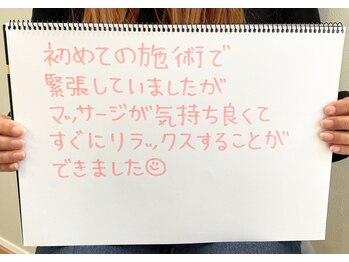 初めての施術で
緊張していましたが
マッサージが気持ち良くて
すぐにリラックスすることが
できました☺